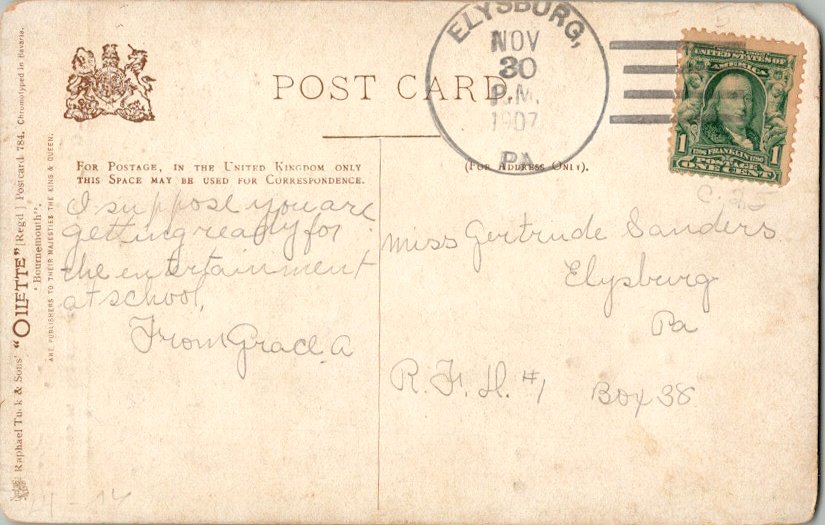 POST CARD.
ELYSBURG,
NOV
30
P.M.
1907
PA
UNITED STATES OF
AMERICA
1 FRANKLIN 1
POSTAGE
ONE CENT
FOR POSTAGE, IN THE UNITED KINGDOM ONLY
THIS SPACE MAY BE USED FOR CORRESPONDENCE.
(FOR ADDRESS ONLY).
I suppose you are
getting ready for
the entertainment
at school,
From Grace. A
Miss Gertrude Sanders
Elysburg
Pa
R. F. D. #1 Box 38
Raphael Tuck & Sons' "OILETTE" [Regd.] Postcard 784. Chromotyped in Bavaria.
"Bournemouth".
ART PUBLISHERS TO THEIR MAJESTIES THE KING & QUEEN.